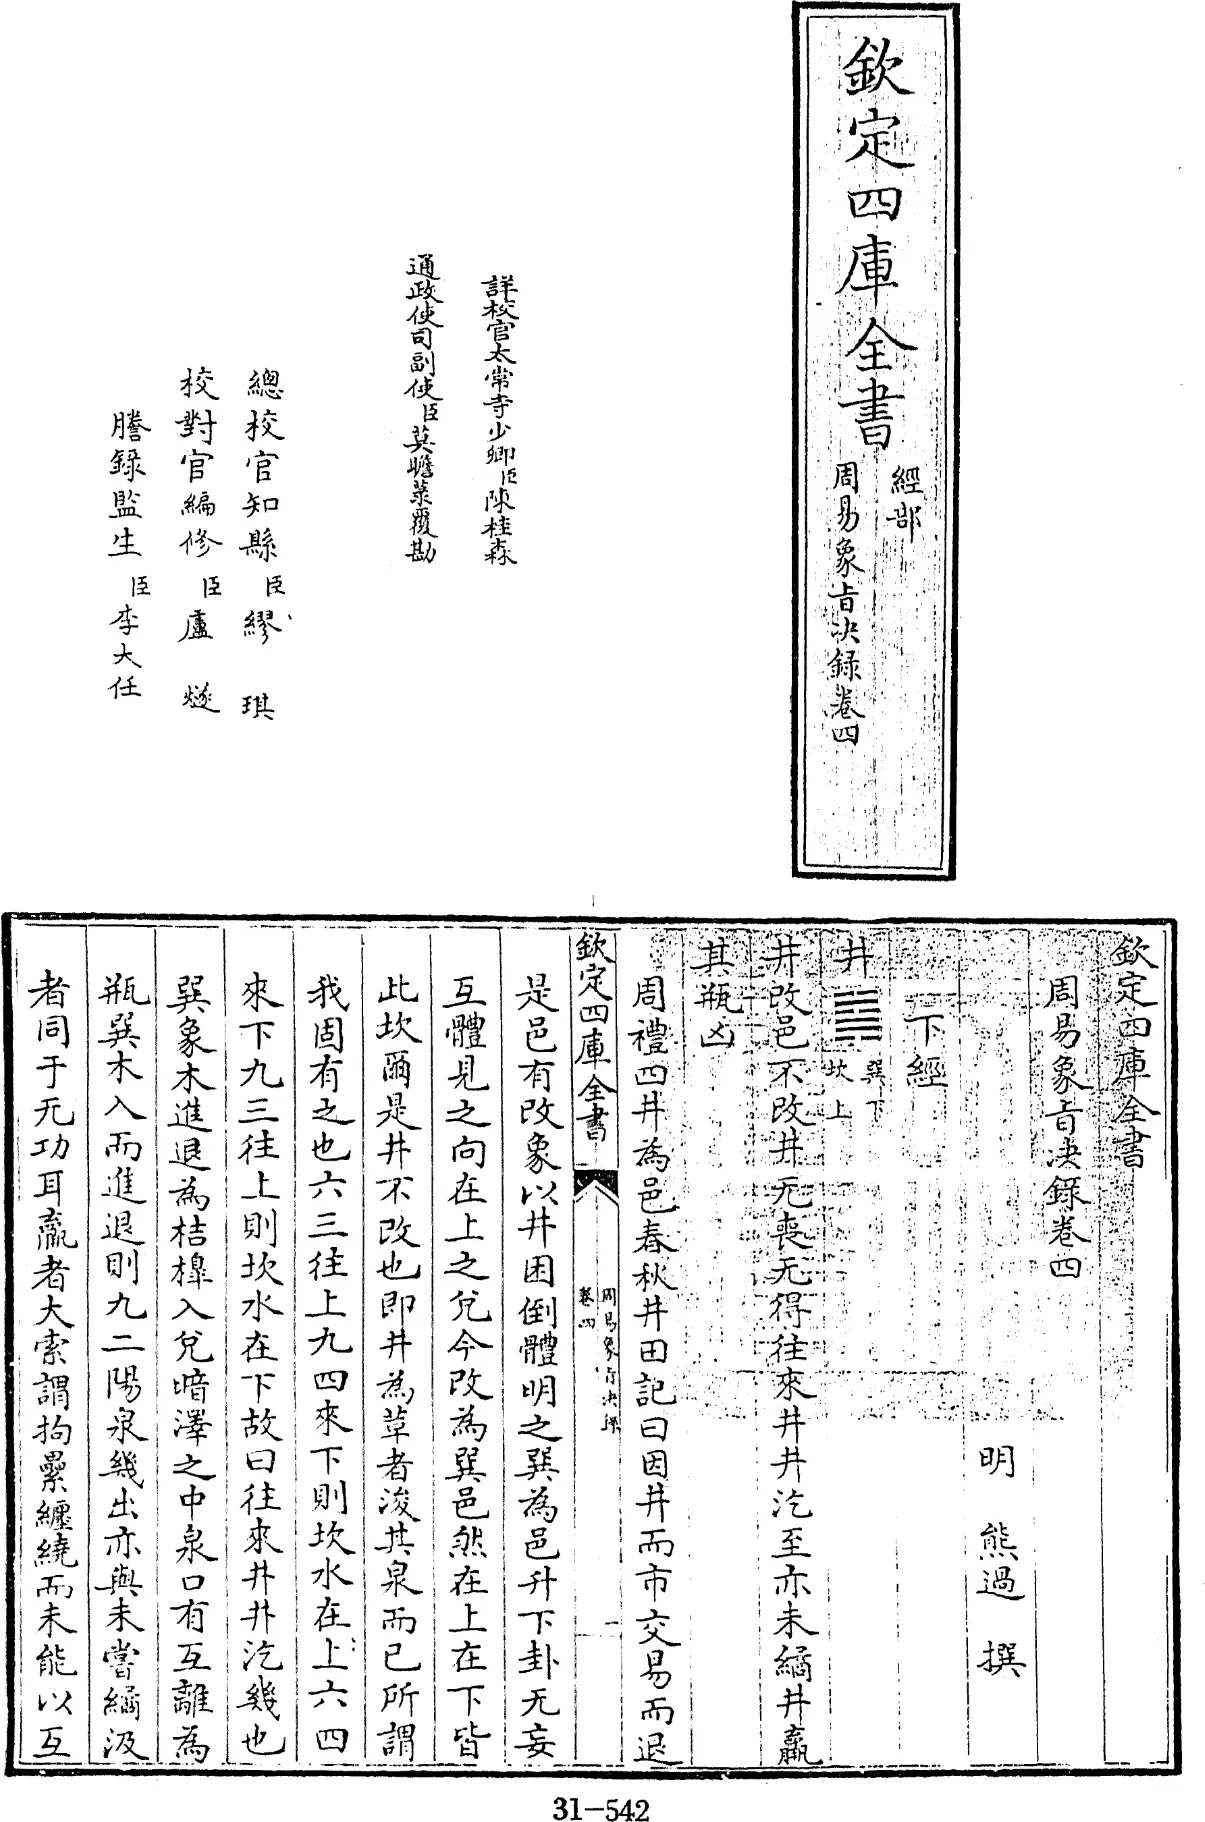 欽定四庫全書
經部
周易象旨决録卷四
詳校官太常寺少卿臣陳桂森
通政使司副使臣莫瞻菉覆勘
總校官知縣臣繆琪
校對官編修臣盧燧
謄録監生臣李大任
欽定四庫全書
周易象旨决録卷四
明 熊過 撰
下經
井 巽下
坎上
井改邑不改井无喪无得往來井井汔至亦未繘井羸
其瓶凶
周禮四井為邑春秋井田記曰因井而市交易而退
欽定四庫全書
周易象旨决録
卷四
一
是邑有改象以井困倒體明之巽為邑升下卦无妄
互體見之向在上之兊今改為巽邑然在上在下皆
此坎爾是井不改也即井為草者浚其泉而已所謂
我固有之也六三往上九四來下則坎水在上六四
來下九三往上則坎水在下故曰往來井井汔幾也
巽象木進退為桔槹入兊暗澤之中泉口有互離為
瓶巽木入而進退則九二陽泉幾出亦與未嘗繘汲
者同于无功耳羸者大索謂拘纍纏繞而未能以互
31-542